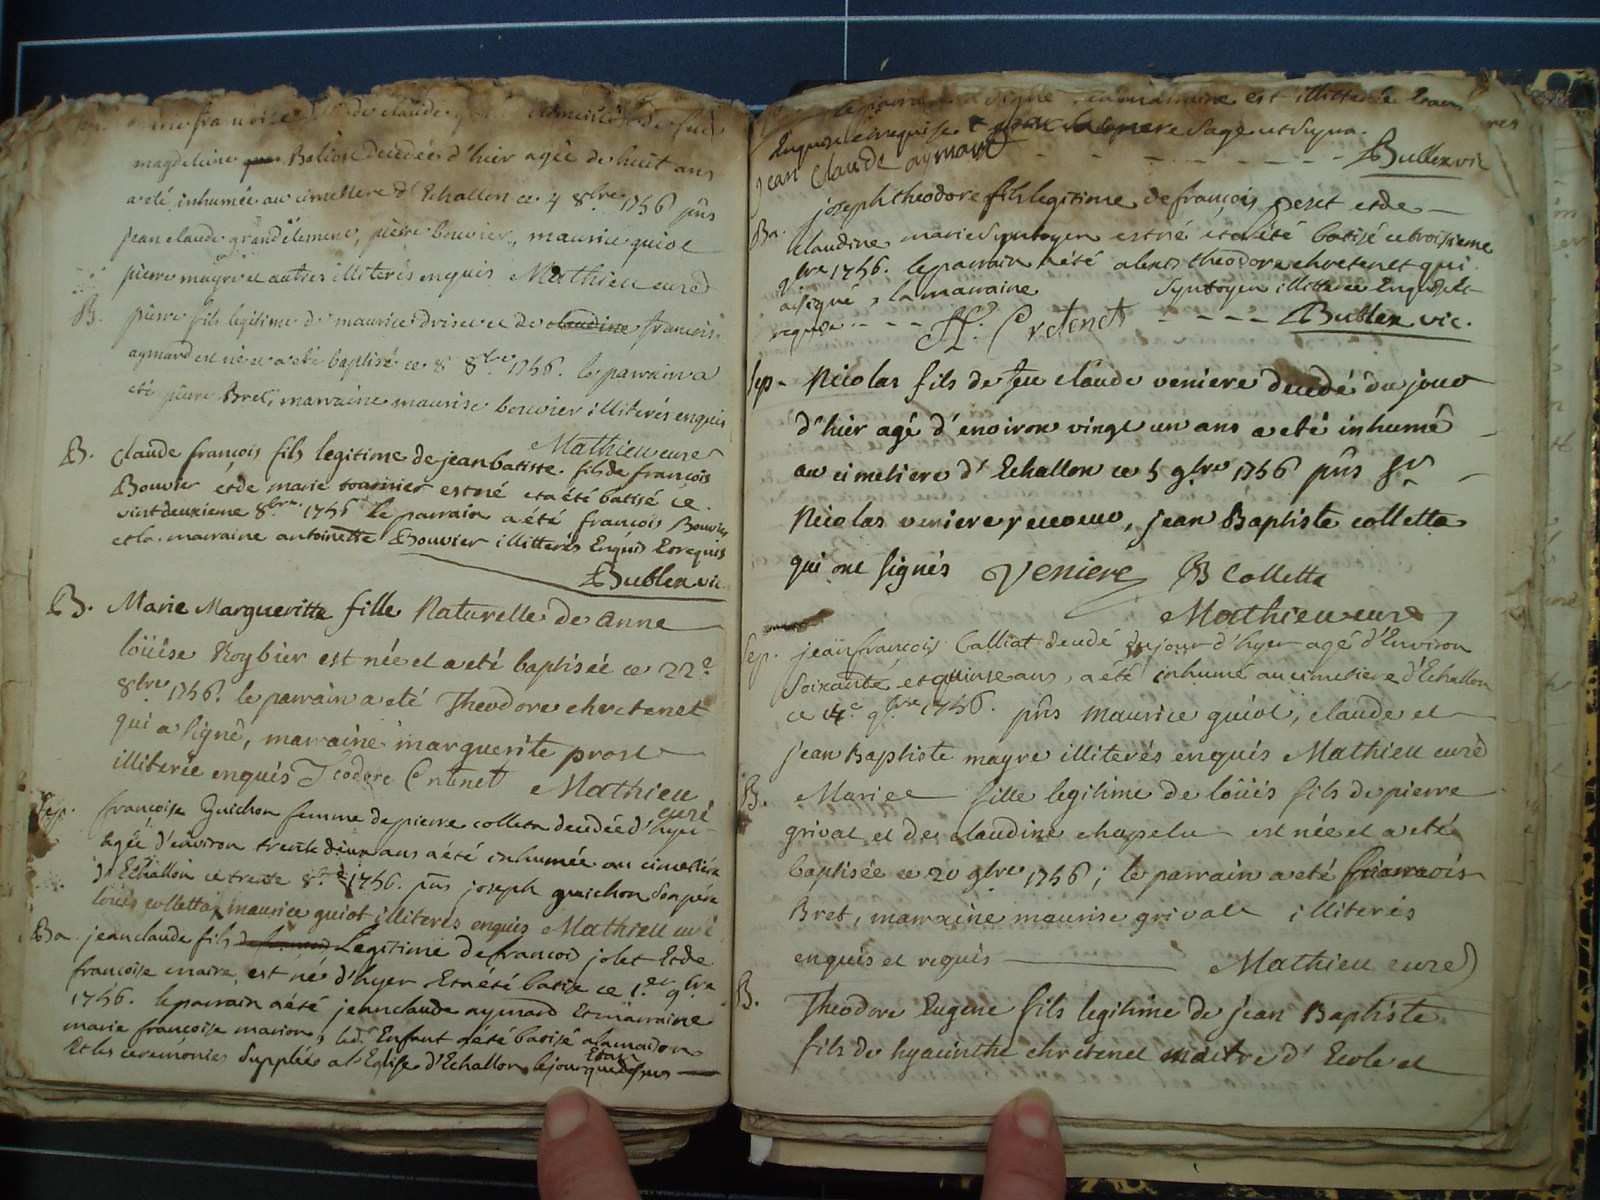 françoise de claude
magdeleine Bolion decedée d'hier agée de huit ans
a eté inhumée au cimetiere d'Echallon ce 4 8bre 1756 pñs
jean claude grandclement, pierre bouvier, maurice guiot
pierre mayre et autres illiterés enquis Mathieu curé
B. pierre fils legitime de maurice et de claudine françoise
aymard est né et a eté baptisé ce 8 8bre 1756. le parrain a
eté pierre Bret, marraine maurise bouvier illiterés enquis
Mathieu curé
B. Claude françois fils legitime de jean batiste fils de françois
Bouvier et de marie tournier est né et a été batisé ce
vint deuxieme 8bre 1756 le parrain a été françois Bouvier
et la marraine antoinette Bouvier illitterés Enquis Et requis
Bublex vic
B. Marie Margueritte fille Naturelle de Anne
loüise Roybier est née et a eté baptisée ce 22e
8bre 1756. le parrain a eté Theodore chretenet
qui a signé, marraine marguerite prost
illiterée enquis Teodore Cretenet Mathieu
curé
Sep. françoise Guichon femme de pierre collet decedée d'hyer
agée d'environ trente deux ans a été inhumée au cimetiére
d'Echallon ce trente 8bre 1756. pñs joseph guichon son pére
loüis colletta, maurice guiot illiterés enquis Mathieu curé
Ba. jean claude fils Legitime de françois jolet Et de
francoise maire est né d'hyer Et a été batisé ce 1er 9bre
1756. le parrain a été jean claude aymard Et marraine
marie françoise marion, led. Enfant a été batisé a la maison
Et les ceremonies Supplées a l'Eglise d'Echallon le jour que dessus
le parrain a signé la marraine est illitterée
Enquise Et requise Sage
jean Claude aymard - - - Bublex vic
Ba. joseph theodore fils legitime de françois peset et de
Claudine marie Syntoyen est né et a été batisé ce troisieme
9bre 1756. le parrain a été alexis theodore chretenet qui
a signé, la marraine Syntoyen illiterée Enquise Et
requise - - - Cretenet - - - Bublex vic.
Sep - Nicolas fils de feu claude veniere decedé du jour
d'hier agé d'environ vingt un ans a eté inhumé
au cimetiere d'Echallon ce 5 9bre 1756 pñs Sr
Nicolas veniere receveur, jean Baptiste colletta
qui ont signés Veniere JB Colletta
Mathieu curé
Sep. jean françois Calliat decedé du jour d'hyer agé d'Environ
soixante et quinse ans, a été inhumé au cimetiere d'Echallon
ce 9bre 1756. pñs maurice guiot, claude et
jean Baptiste mayre illiterés enquis Mathieu curé
B. Marie fille legitime de loüis fils de pierre
grivat et de claudine chapelu est née et a eté
baptisée ce 20 9bre 1756; le parrain a eté francois
Bret, marraine maurise grivat illiterés
enquis et requis Mathieu curé
B. Theodore Eugene fils legitime de jean Baptiste
fils de hyacinthe chretenet maitre d'Ecole et